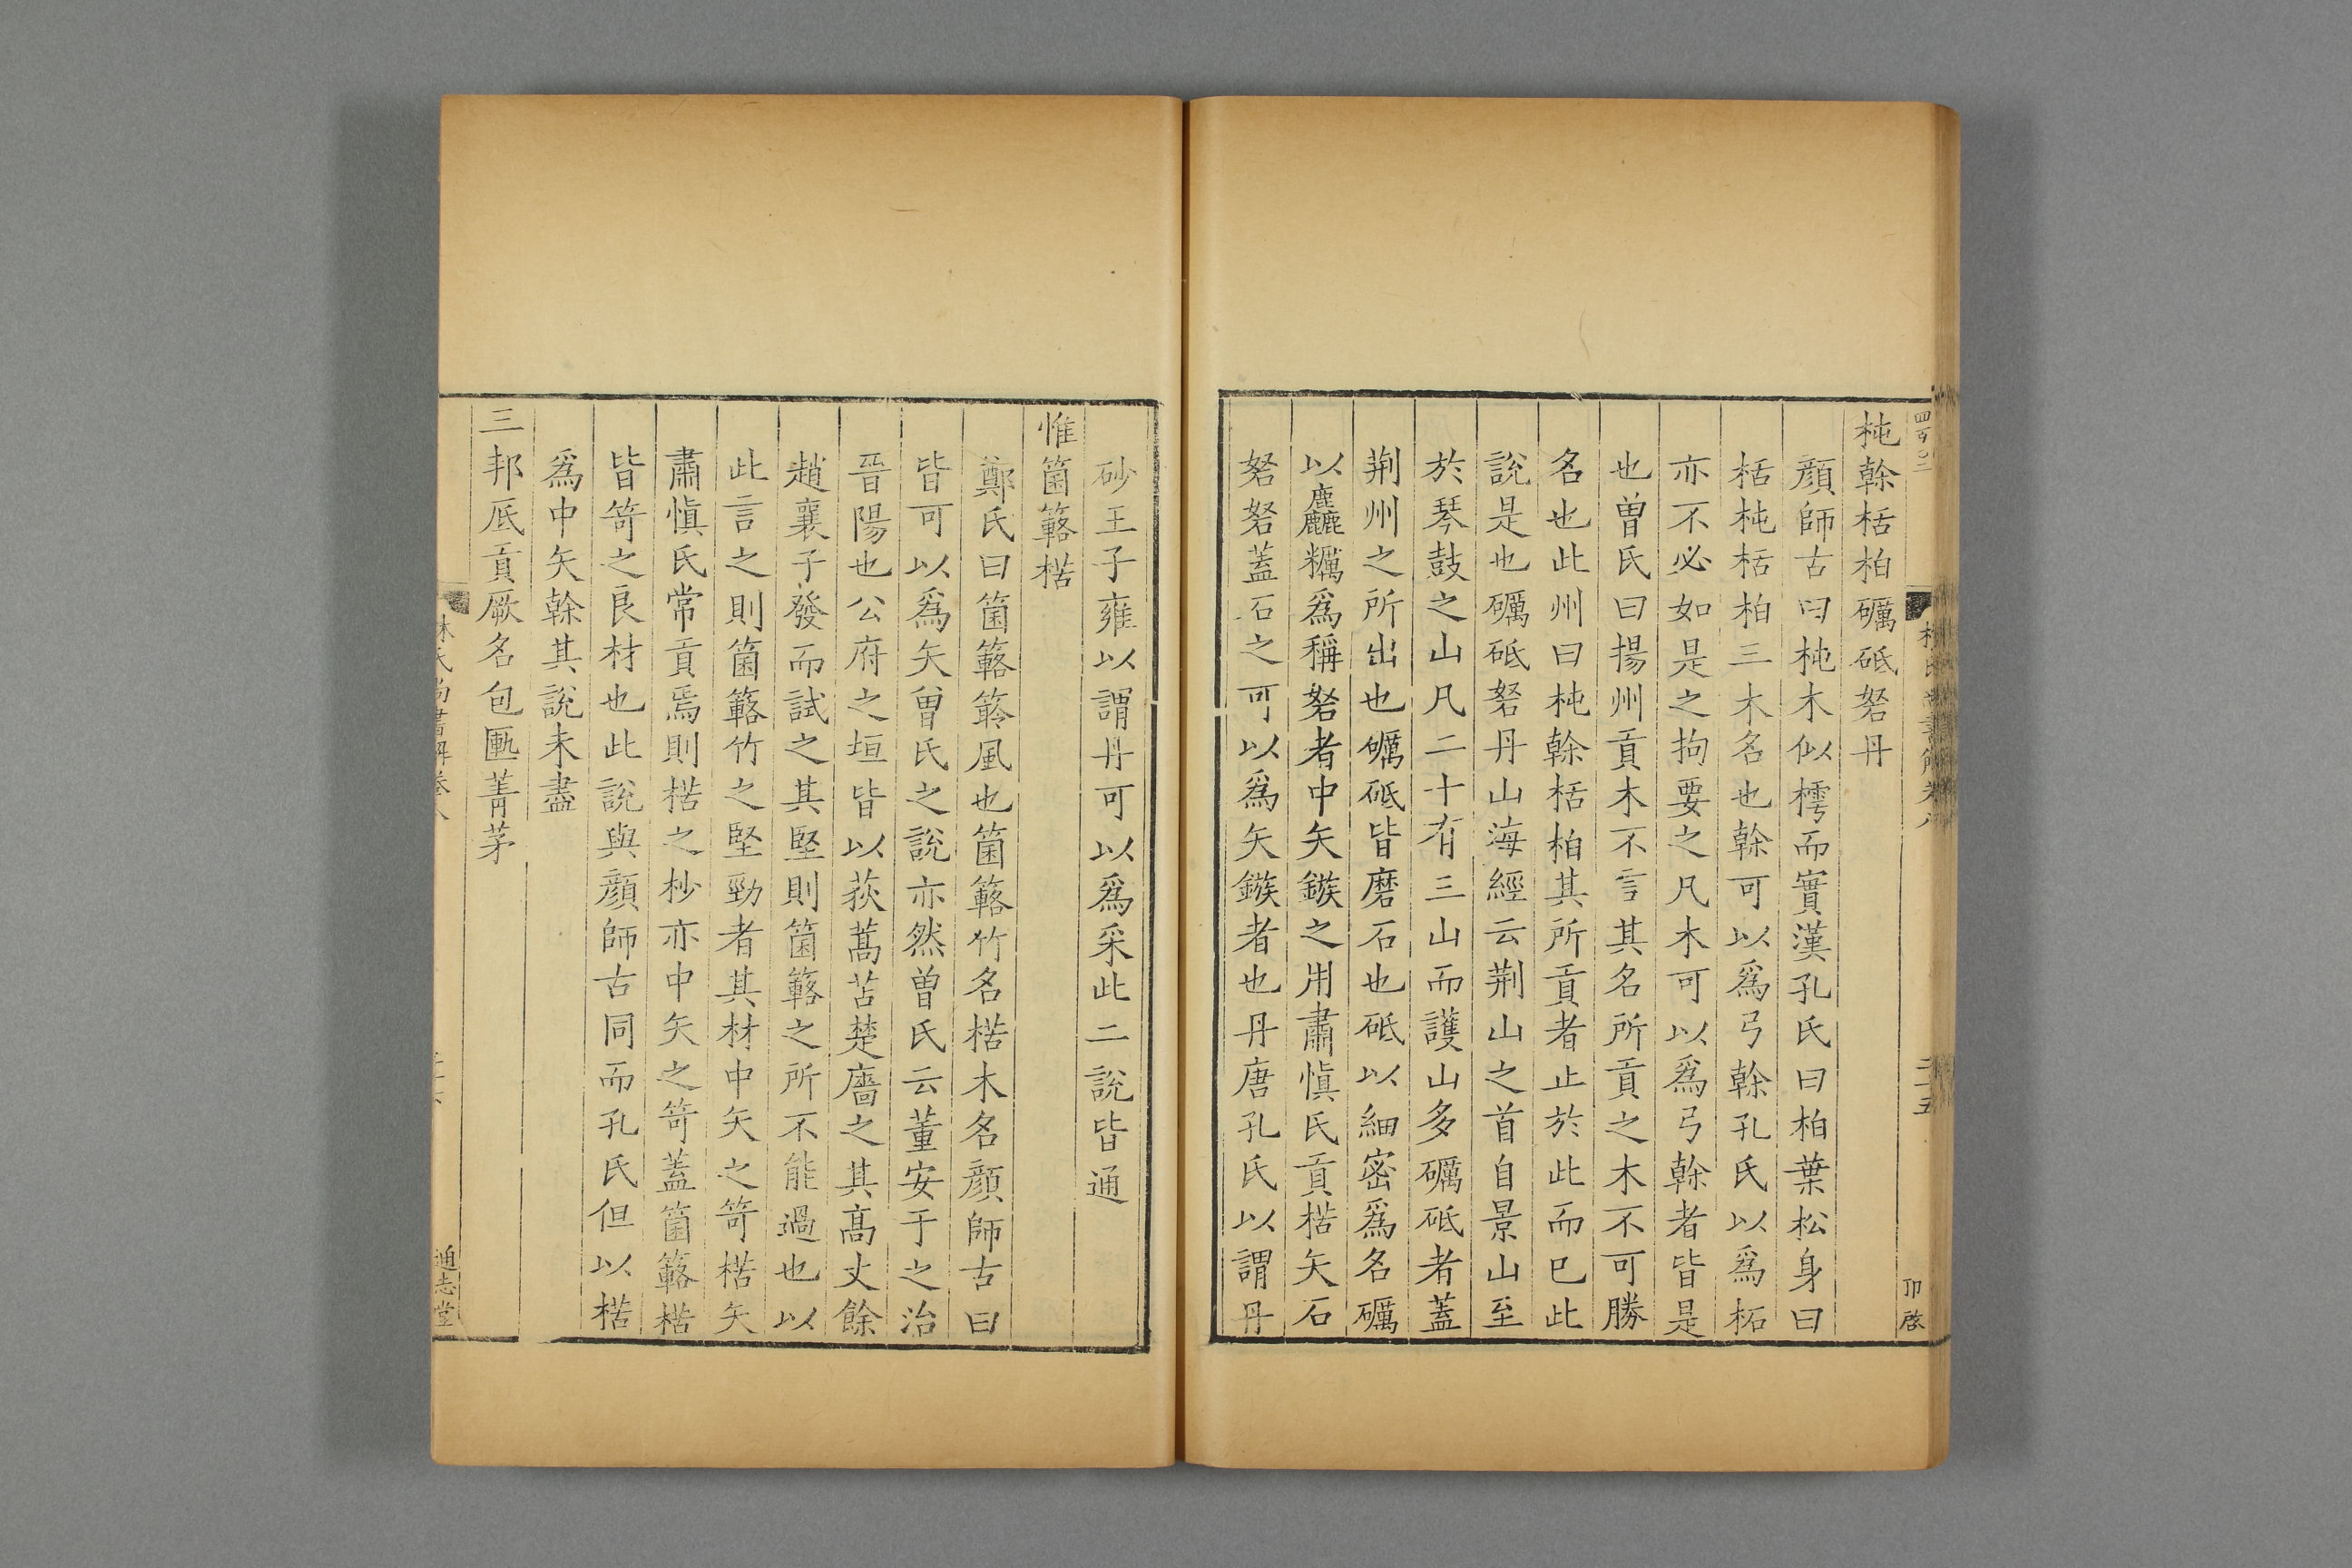 杶榦栝柏礪砥砮丹
顔師古曰杶木似樗而實漢孔氏曰柏葉松身曰
栝杶栝柏三木名也榦可以爲弓榦孔氏以爲柘
亦不必如是之拘要之凡木可以爲弓榦者皆是
也曽氏曰揚州貢木不言其名所貢之木不可勝
名也此州曰杶榦栝柏其所貢者止於此而巳此
說是也礪砥砮丹山海經云荆山之首自景山至
於琴鼓之山凡二十有三山而護山多礪砥者蓋
荆州之所出也礪砥皆磨石也砥以細密爲名礪
以麤糲爲稱砮者中矢鏃之用肅愼氏貢楛矢石
砮砮蓋石之可以爲矢鏃者也丹唐孔氏以謂丹
砂王子雍以謂丹可以爲采此二說皆通
惟箘簵楛
鄭氏曰箘簵箊風也箘簵竹名楛木名顔師古曰
皆可以爲矢曽氏之說亦然曽氏云董安于之治
晉陽也公府之垣皆以荻蒿苫楚廧之其高丈餘
趙襄子發而試之其堅則箘簵之所不能過也以
此言之則箘簵竹之堅勁者其材中矢之笴楛矢
肅愼氏常貢焉則楛之杪亦中矢之笴蓋箘簵楛
皆笴之良材也此說與顔師古同而孔氏但以楛
爲中矢榦其說未盡
三邦厎貢厥名包匭菁茅
林氏尚書解卷八
通志堂